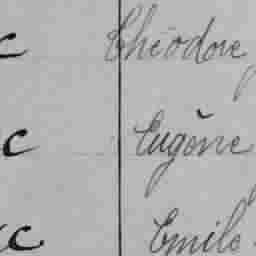 c Théodore
c Eugène
c Emile